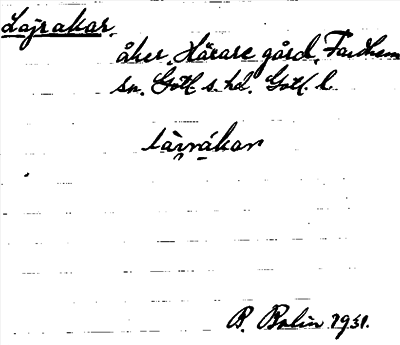 Lajrakar.
åker, Härare gård, Fardhem
sn. Gotl. s. hd. Gotl. l.
lài̯rákar
B. Bolin 1931.